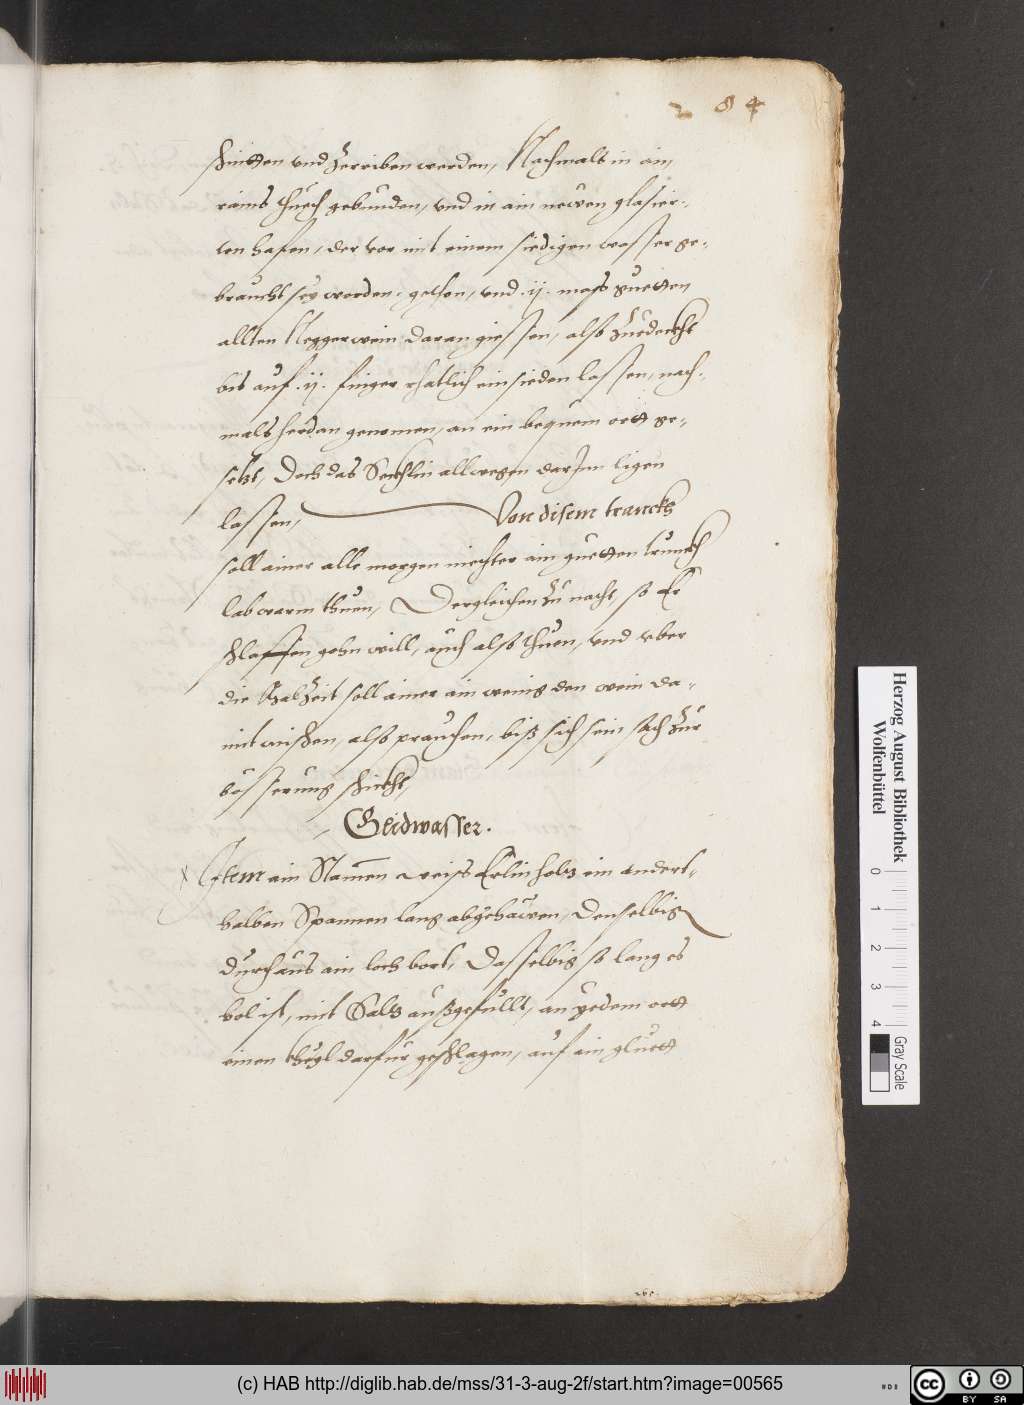 284
schnitten vnd Zerriben werden, Nachmals in ain
rains thuech gebunden, vnd in ain newen glasier-
ten hafen, der vor mit einem siedigen wasser ge-
braucht sey worden, gethon, vnd .ij. mass guetten
allten Neggerwein daran giessen, also Zuedeckht
bis auf .ij. finger einsieden lassen, nach-
mals herdan genomen, an ein bequem ortt ge-
setzt, Doch das Seckhlin allwegen darInn ligen
lassen, Von disem tranckh
soll ainer alle morgen niechter ain guetten trunckh
labwarm thuen, Dergleichen Zu nacht, so Er
schlaffen gehn will, auch also thuen, vnd vber
die Malzeit soll ainer ain wenig den wein da-
mit mischen, also prauchen, biß sich sein sach Zur
besserung schickht,
Glidwasser.
Item ain Stamen weiss Erlin holtz ein andert-
halben Spannen lang abgehawen, Denselbig
durchaus ain loch bort, Dasselbig so lang es
hol ist, mit Saltz außgefullt, an yedem ortt
einen darfur geschlagen, auf ain gluett
Herzog August Bibliothek
Wolfenbüttel
0 1 2 3 4
Gray Scale
(c) HAB http://diglib.hab.de/mss/31-3-aug-2f/start.htm?image=00565
cc BY SA